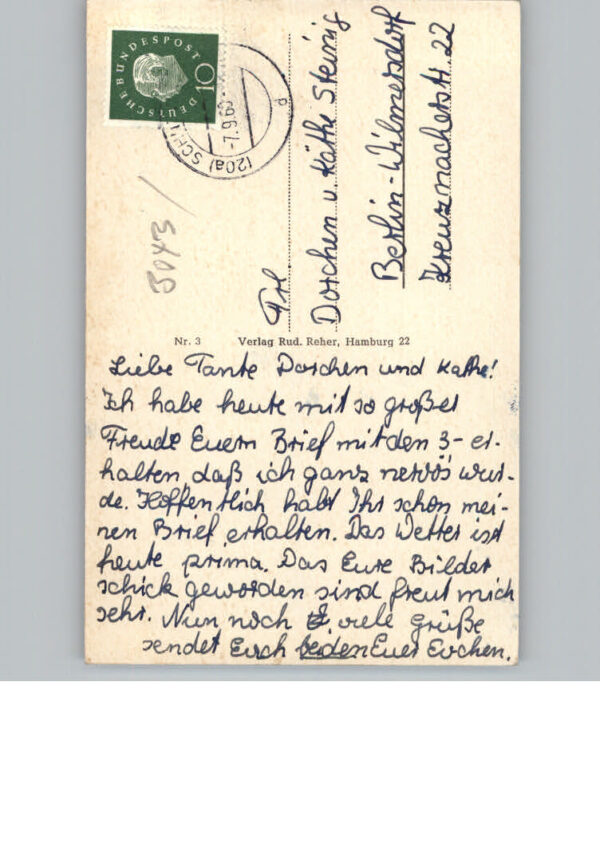 DEUTSCHE BUNDESPOST
10
(20a) SCHN
-7.9.60-
5043
Frl
Dorchen u. Käthe Steinig
Berlin-Wilmersdorf
Kreuznacherstr. 22
Nr. 3 Verlag Rud. Reher, Hamburg 22
Liebe Tante Dorchen und Käthe!
Ich habe heute mit so großer
Freude Euern Brief mit den 3- er-
halten, daß ich ganz nervös wur-
de. Hoffentlich habt Ihr schon mei-
nen Brief erhalten. Das Wetter ist
heute prima. Das Eure Bilder
schick geworden sind freut mich
sehr. Nun noch viele Grüße
sendet Euch beiden Euer Evchen.